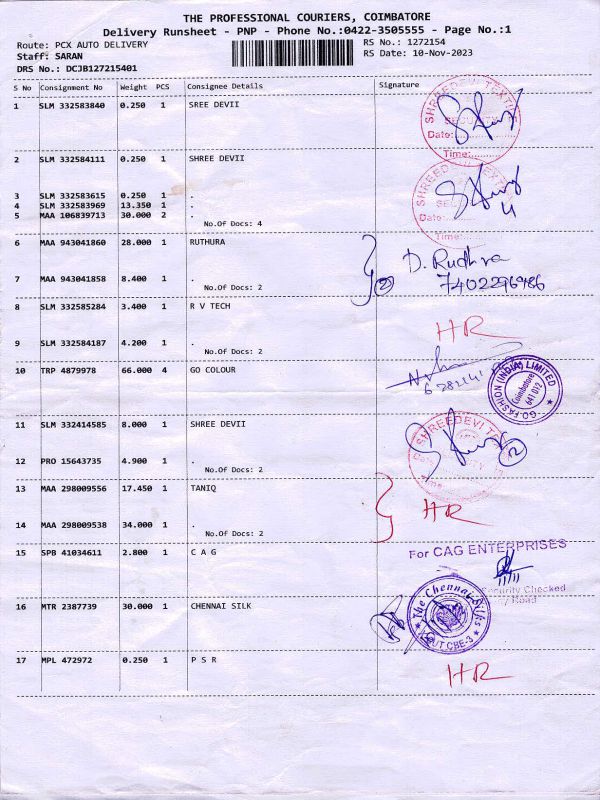 THE PROFESSIONAL COURIERS, COIMBATORE
Delivery Runsheet - PNP - Phone No.:0422-3505555 - Page No.:1
Route: PCX AUTO DELIVERY
RS No.: 1272154
Staff: SARAN
RS Date: 10-Nov-2023
DRS No.: DCJB127215401
S No Consignment No Weight PCS Consignee Details Signature
1 SLM 332583840 0.250 1 SREE DEVII
SHREEDEVI TEXTILE
SECURITY
Date:
Time:
2 SLM 332584111 0.250 1 SHREE DEVII
SHREEDEVI TEXTILE
3 SLM 332583615 0.250 1 .
4 SLM 332583969 13.350 1 .
5 MAA 106839713 30.000 2 .
Date:
4
No.Of Docs: 4
Time:
6 MAA 943041860 28.000 1 RUTHURA
D. Rudhra
7 MAA 943041858 8.400 1 .
7402296986
No.Of Docs: 2
2
8 SLM 332585284 3.400 1 R V TECH
HR
9 SLM 332584187 4.200 1 .
No.Of Docs: 2
10 TRP 4879978 66.000 4 GO COLOUR
GO FASHION (INDIA) LIMITED
Coimbatore
641 012
11 SLM 332414585 8.000 1 SHREE DEVII
SHREEDEVI
2
12 PRO 15643735 4.900 1 .
No.Of Docs: 2
13 MAA 298009556 17.450 1 TANIQ
HR
14 MAA 298009538 34.000 1 .
No.Of Docs: 2
15 SPB 41034611 2.800 1 C A G
For CAG ENTERPRISES
11/11
Security Checked
Road
16 MTR 2387739 30.000 1 CHENNAI SILK
The Chennai Silks
CBE-3
17 MPL 472972 0.250 1 P S R
HR